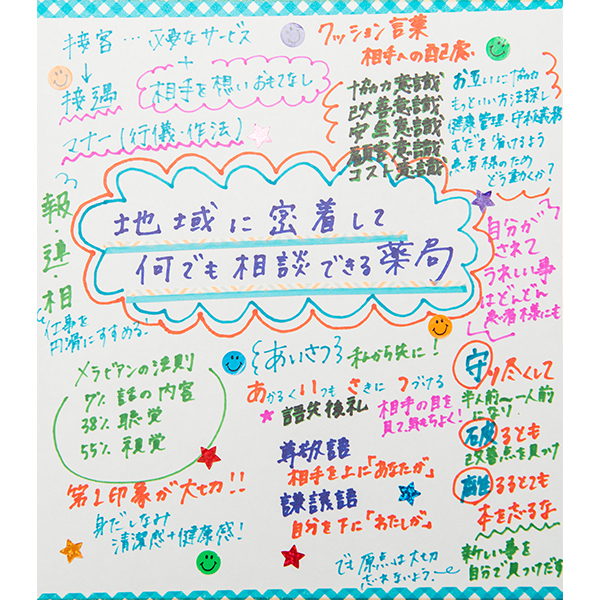 接客…必要なサービス
↓ +
接遇 相手を想いおもてなし
マナー(行儀・作法)
クッション言葉
相手への配慮
協力意識 お互いに協力
改善意識 もっといい方法探し
安全意識 健康管理・守秘義務
顧客意識 患者様のため
コスト意識 むだを省けるよう
どう動くか?
地域に密着して
何でも相談できる薬局
報・連・相
仕事を
円滑にすすめる!
自分が
されて
うれしい事
はどんどん
患者様にも
メラビアンの法則
7% 話の内容
38% 聴覚
55% 視覚
第1印象が大切!!
身だしなみ
清潔感+健康感!
あいさつ 私から先に!
あかるく いつも さきに つづける
語先後礼 相手の目を
見て気持ちよく!
尊敬語
相手を上に「あなたが」
謙譲語
自分を下に「わたしが」
でも原点は大切
忘れないよう
守り尽くして
半人前〜一人前
になり
破るとも
改善点を見つけ
離るるとても
本を忘るな
新しい事を
自分で見つけだす